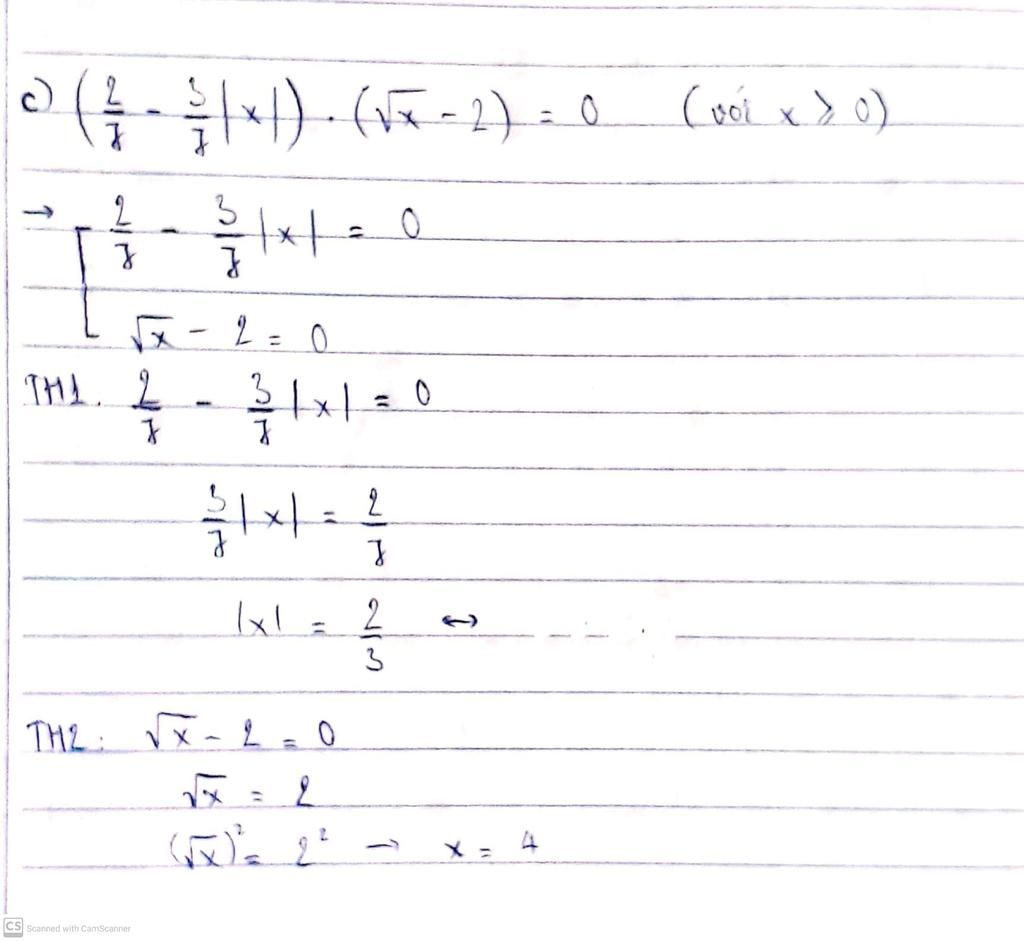 c) (2/7 - 3/7|x|) . (√x - 2) = 0 (với x ⩾ 0)
→ [ 2/7 - 3/7|x| = 0
√x - 2 = 0
TH1. 2/7 - 3/7|x| = 0
3/7|x| = 2/7
|x| = 2/3 ↔
TH2: √x - 2 = 0
√x = 2
(√x)² = 2² → x = 4
CS Scanned with CamScanner